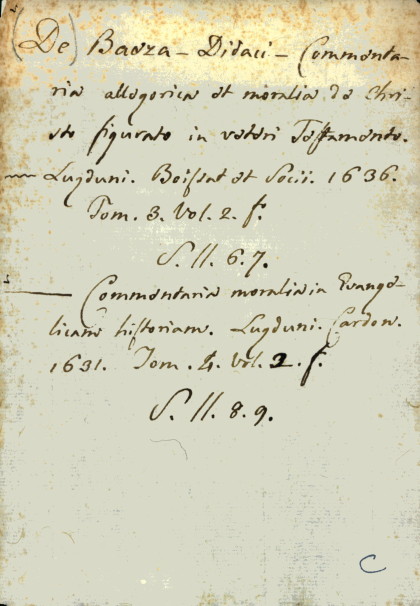 (De) Baeza - Didaci - Commenta-
ria allegorica et moralia de Chri-
sto figurato in veteri Testamento.
Lugduni. Boissat et Socii. 1636.
Tom. 3. Vol. 2. f.
S. II. 6. 7.
Commentaria moralia in Evange-
licam historiam. Lugduni. Cardon.
1631. Tom. 4. Vol. 2. f.
S. II. 8. 9.
C